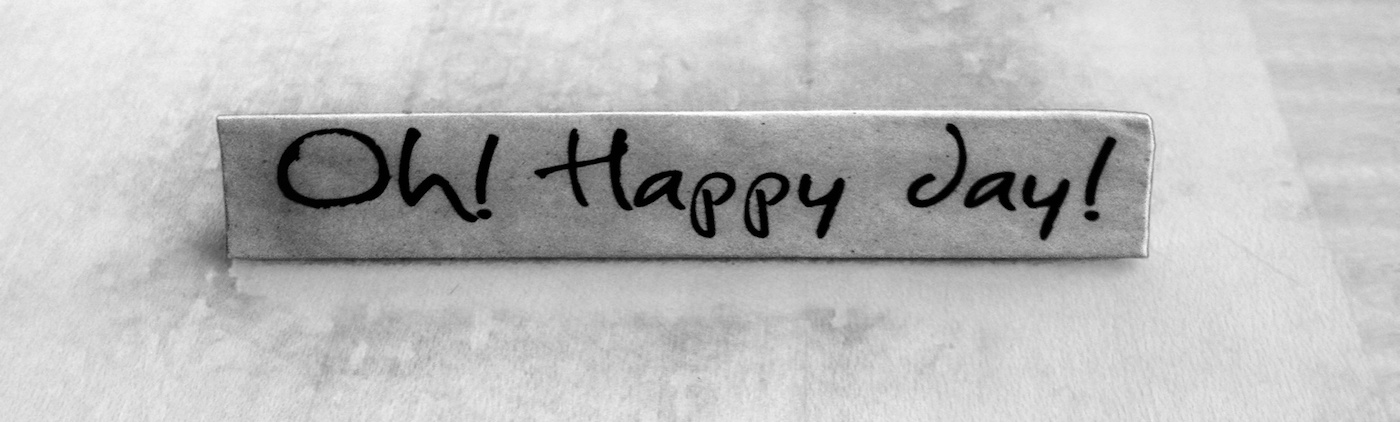 Oh! Happy day!